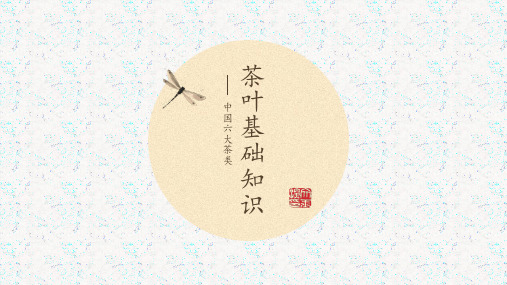 茶叶基础知识
中国六大茶类